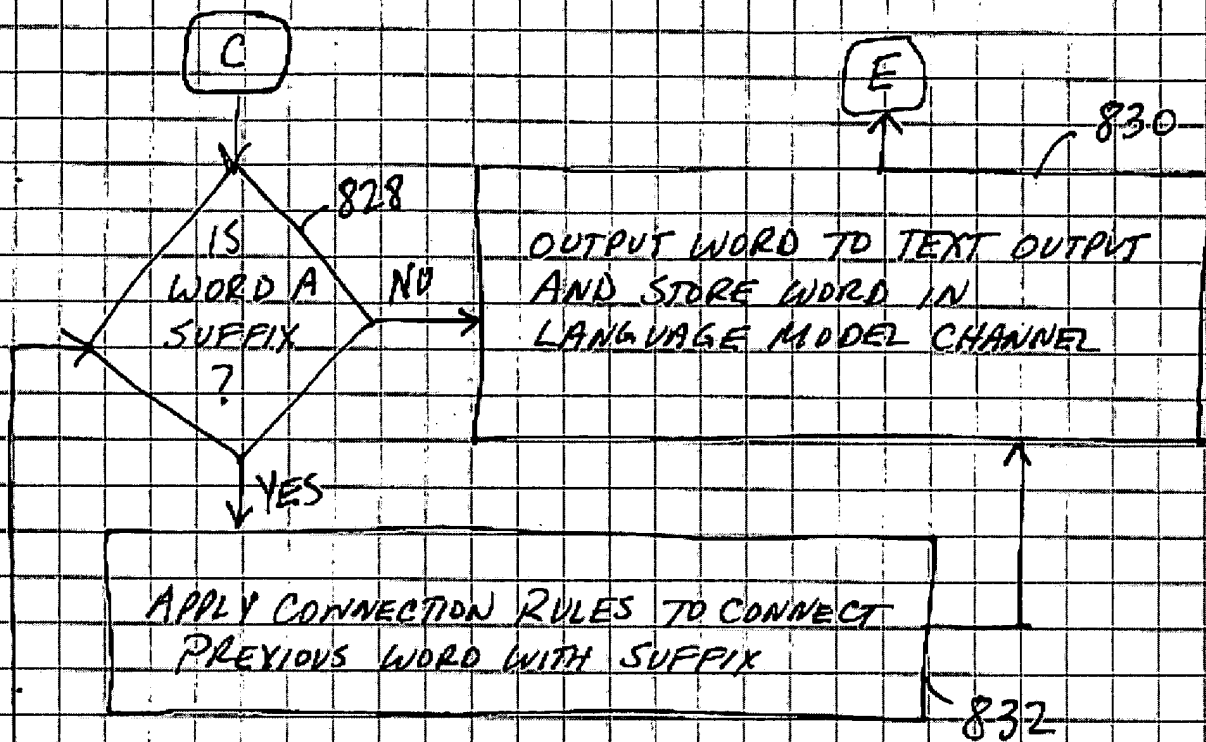 C
E
830
828
IS
WORD A
SUFFIX
?
NO
OUTPUT WORD TO TEXT OUTPUT
AND STORE WORD IN
LANGUAGE MODEL CHANNEL
YES
APPLY CONNECTION RULES TO CONNECT
PREVIOUS WORD WITH SUFFIX
832